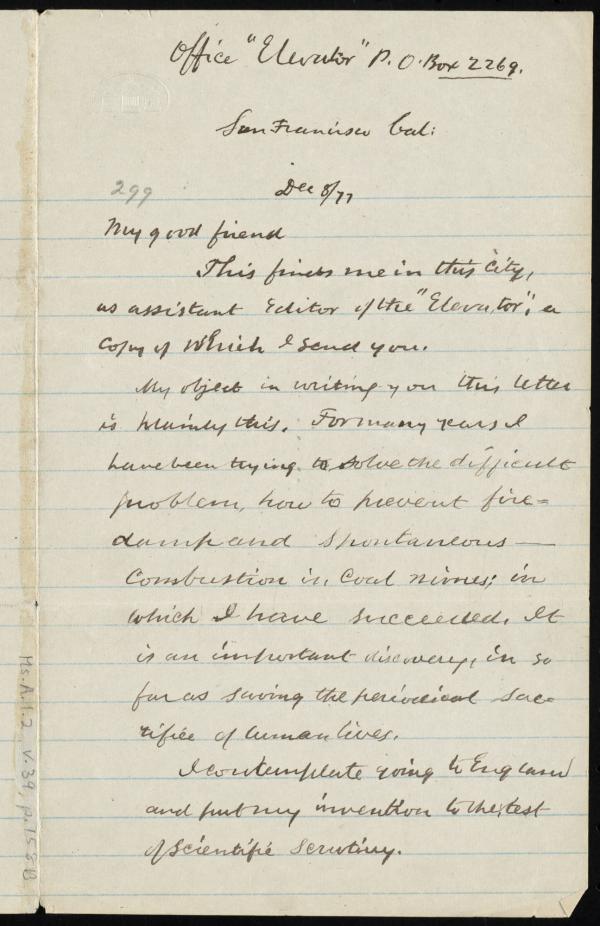 Office "Elevator" P.O. Box 2269.
San Francisco Cal:
299
Dec 8/77
My good friend
This finds me in this City,
as assistant Editor of the "Elevator"; a
Copy of which I send you.
My object in writing you this letter
is plainly this. For many years I
have been trying to solve the difficult
problem, how to prevent fire=
damp and Spontaneous—
Combustion in Coal mines; in
which I have succeeded. It
is an important discovery, in so
far as saving the periodical sac=
rifice of human lives.
I contemplate going to England
and put my invention to the test
of Scientific Scrutiny.
Ms.A.1.2 v.39, p.158B